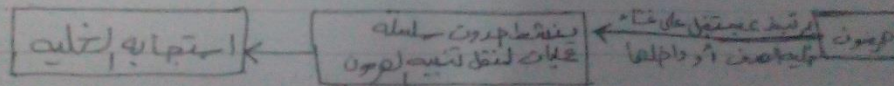 هرمون
يرتبط بمستقبل على غشاء
خلية الهدف أو داخلها
ينشط حدوث سلسلة
عمليات لنقل تنبيه الهرمون
استجابه الخليه